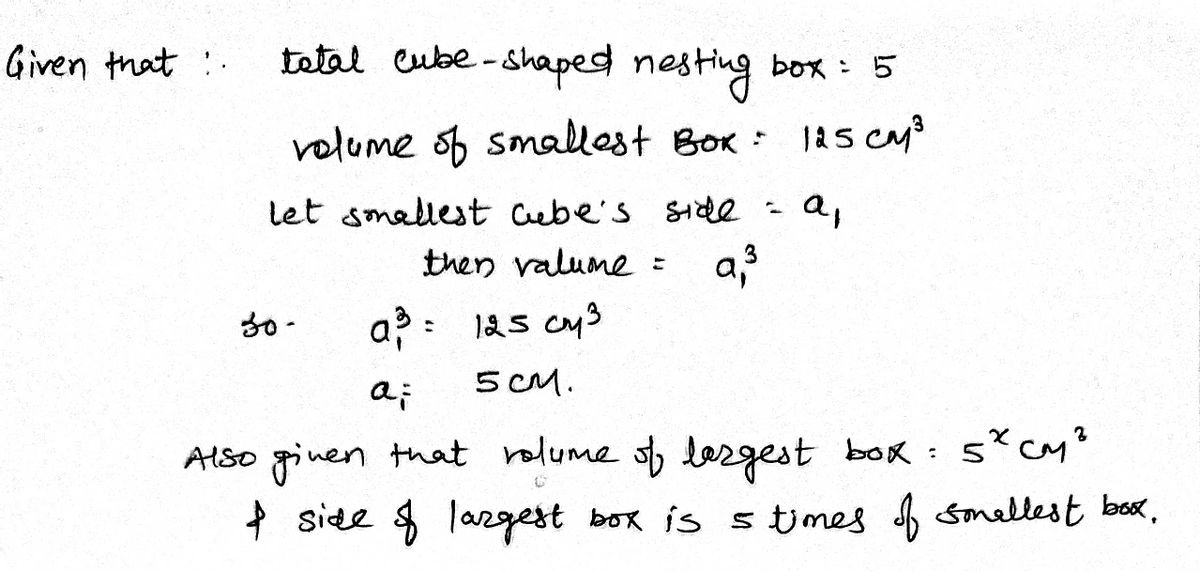 Given that :. total cube-shaped nesting box = 5
volume of smallest Box = 125 cm³
let smallest cube's side = a₁
then valume = a₁³
so- a₁³ = 125 cm³
a₁ = 5 cm.
Also given that volume of largest box = 5ˣ cm³
& side of largest box is 5 times of smallest box.